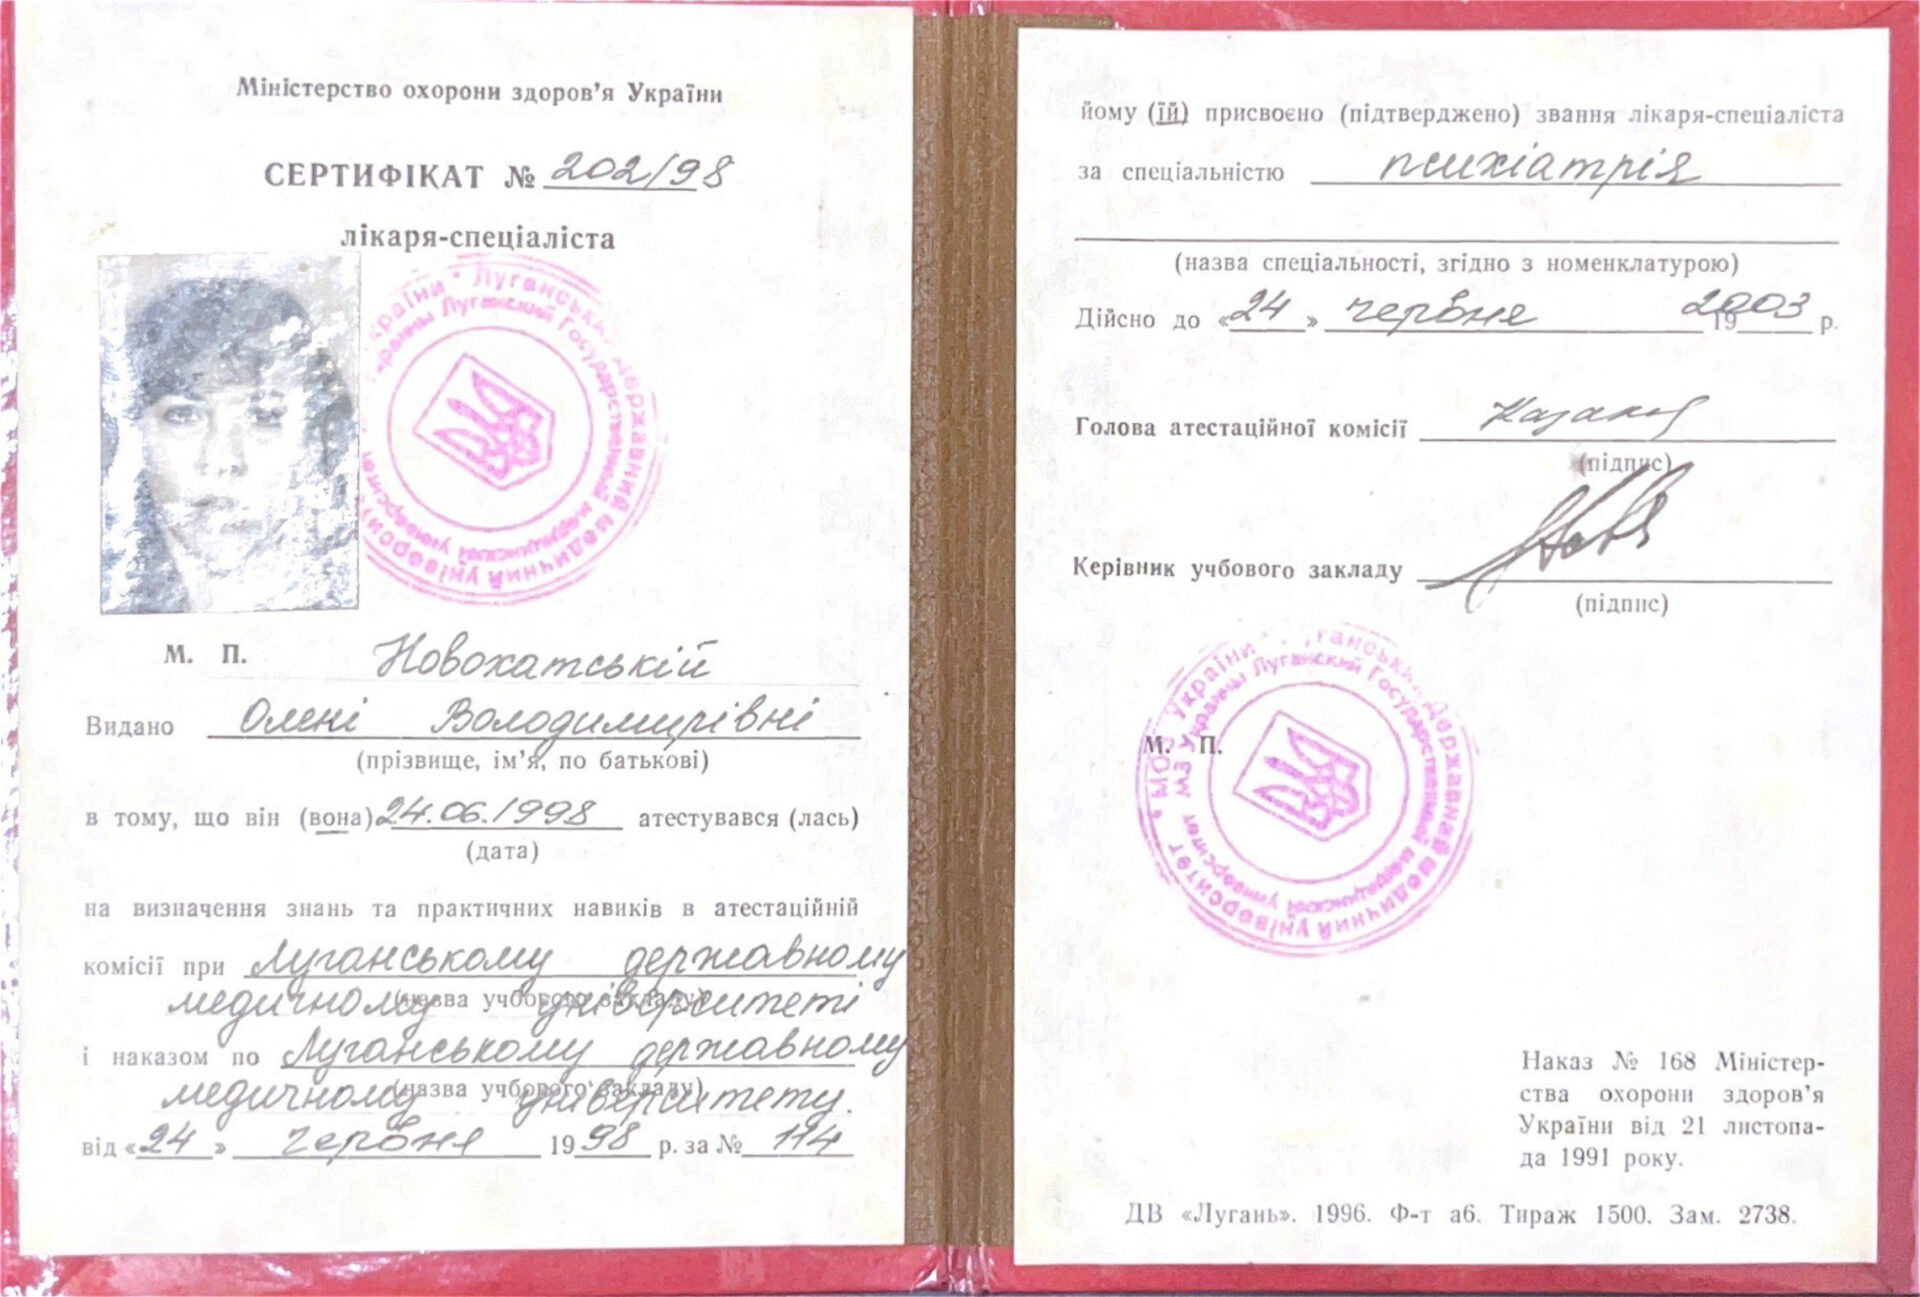 Міністерство охорони здоров'я України
СЕРТИФІКАТ № 202/98
лікаря-спеціаліста
М. П.
Новохатській
Видано Олені Володимирівні
(прізвище, ім'я, по батькові)
в тому, що він (вона) 24.06.1998 атестувався (лась)
(дата)
на визначення знань та практичних навиків в атестаційній
комісії при Луганському державному
медичному університеті
(назва учбового закладу)
і наказом по Луганському державному
медичному університету.
(назва учбового закладу)
від «24» червня 1998 р. за № 114
йому (їй) присвоєно (підтверджено) звання лікаря-спеціаліста
за спеціальністю психіатрія
(назва спеціальності, згідно з номенклатурою)
Дійсно до «24» червня 19 2003 р.
Голова атестаційної комісії
(підпис)
Керівник учбового закладу
(підпис)
М. П.
МОЗ України • Луганський Державний медичний університет •
МЗ Украины Луганский Государственный медицинский университет
Наказ № 168 Міністер-
ства охорони здоров'я
України від 21 листопа-
да 1991 року.
ДВ «Лугань». 1996. Ф-т а6. Тираж 1500. Зам. 2738.